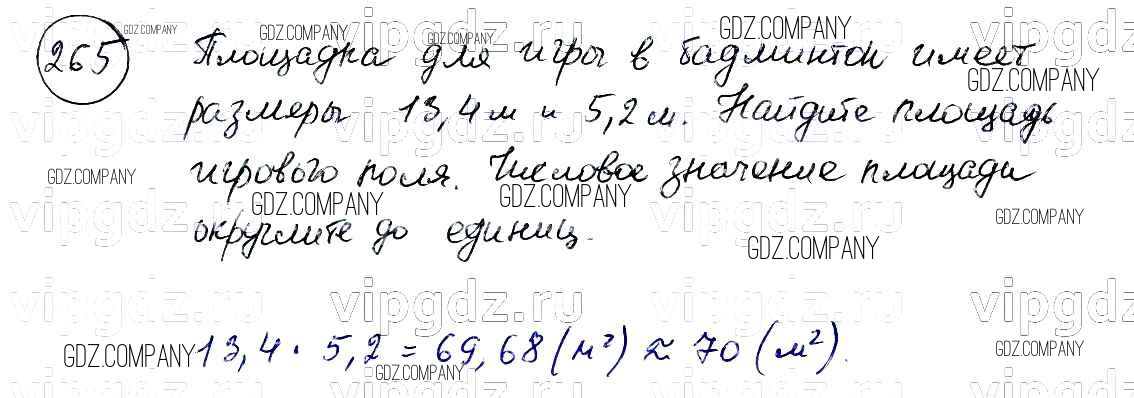 265 Площадка для игры в бадминтон имеет
размеры 13,4 м и 5,2 м. Найдите площадь
игрового поля. Числовое значение площади
округлите до единиц.
13,4 · 5,2 = 69,68 (м²) ≈ 70 (м²).
GDZ.COMPANY
vipgdz.ru